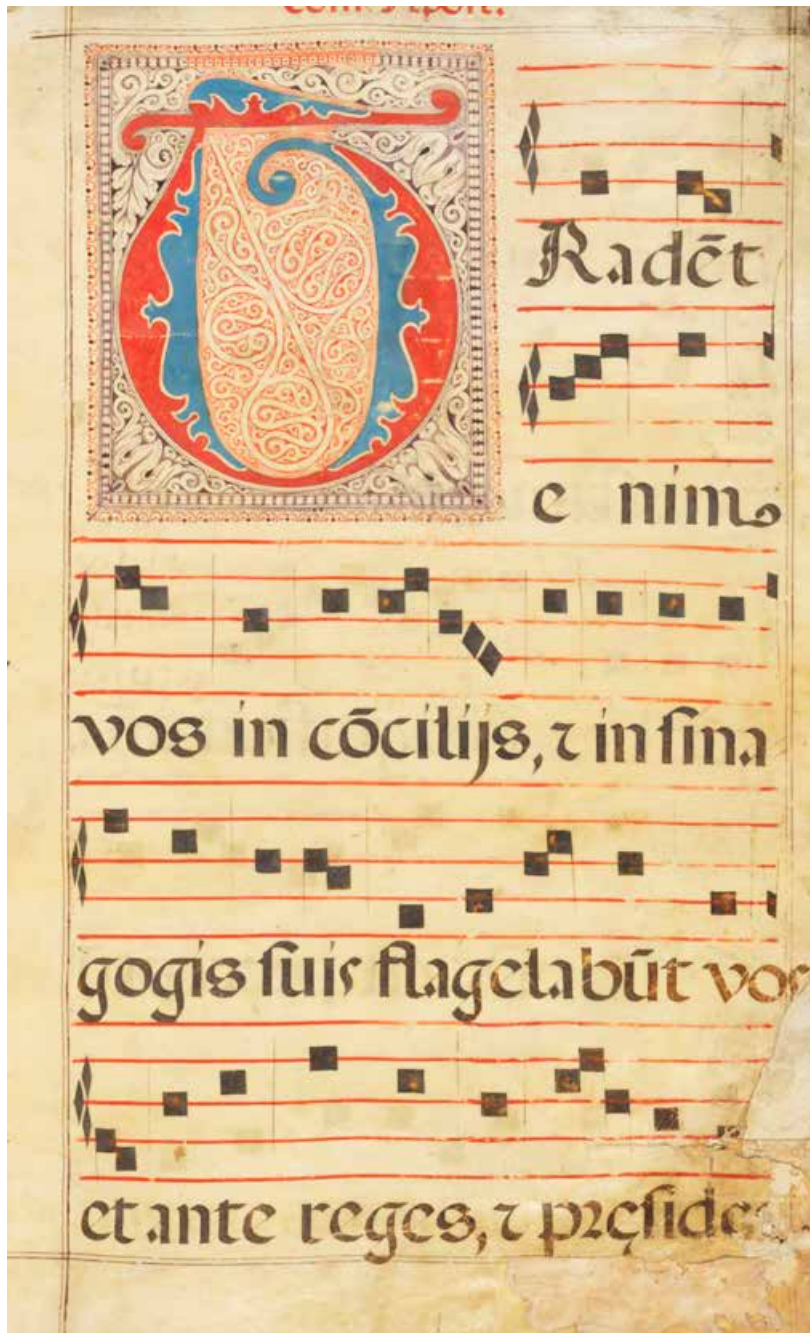 TRadēt
e nim
vos in cōcilijs, ⁊ in ſina
gogis ſuis flagelabūt vos
et ante reges, ⁊ pręſides